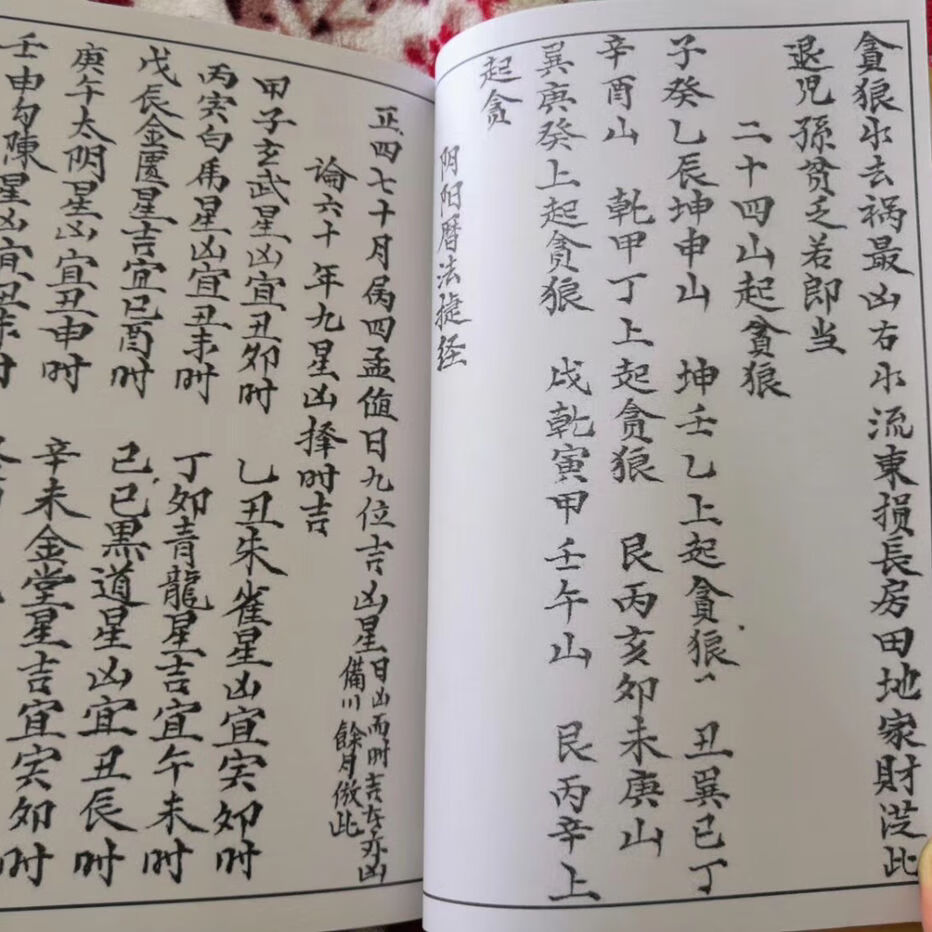 貪狼水去祸最凶右水流東损長房田地家財涏此
退児孫貧乏若郎当
二十四山起貪狼
子癸乙辰坤申山 坤壬乙上起貪狼 丑巽已丁
辛酉山 乾甲丁上起貪狼 艮丙亥卯未庚山
巽庚癸上起貪狼 戌乾寅甲壬午山 艮丙辛上
起貪
阴阳曆法捷经
正四七十月属四孟値日九位吉凶星
日凶而时吉去亦凶
備川餘月倣此
論六十年九星凶择时吉
甲子玄武星凶宜丑卯时 乙丑朱雀星凶宜寅卯时
丙寅白虎星凶宜丑未时 丁卯青龍星吉宜午未时
戊辰金匱星吉宜巳酉时 己巳黒道星凶宜丑辰时
庚午太阴星凶宜丑申时 辛未金堂星吉宜寅卯时
壬申勾陳星凶宜丑未时